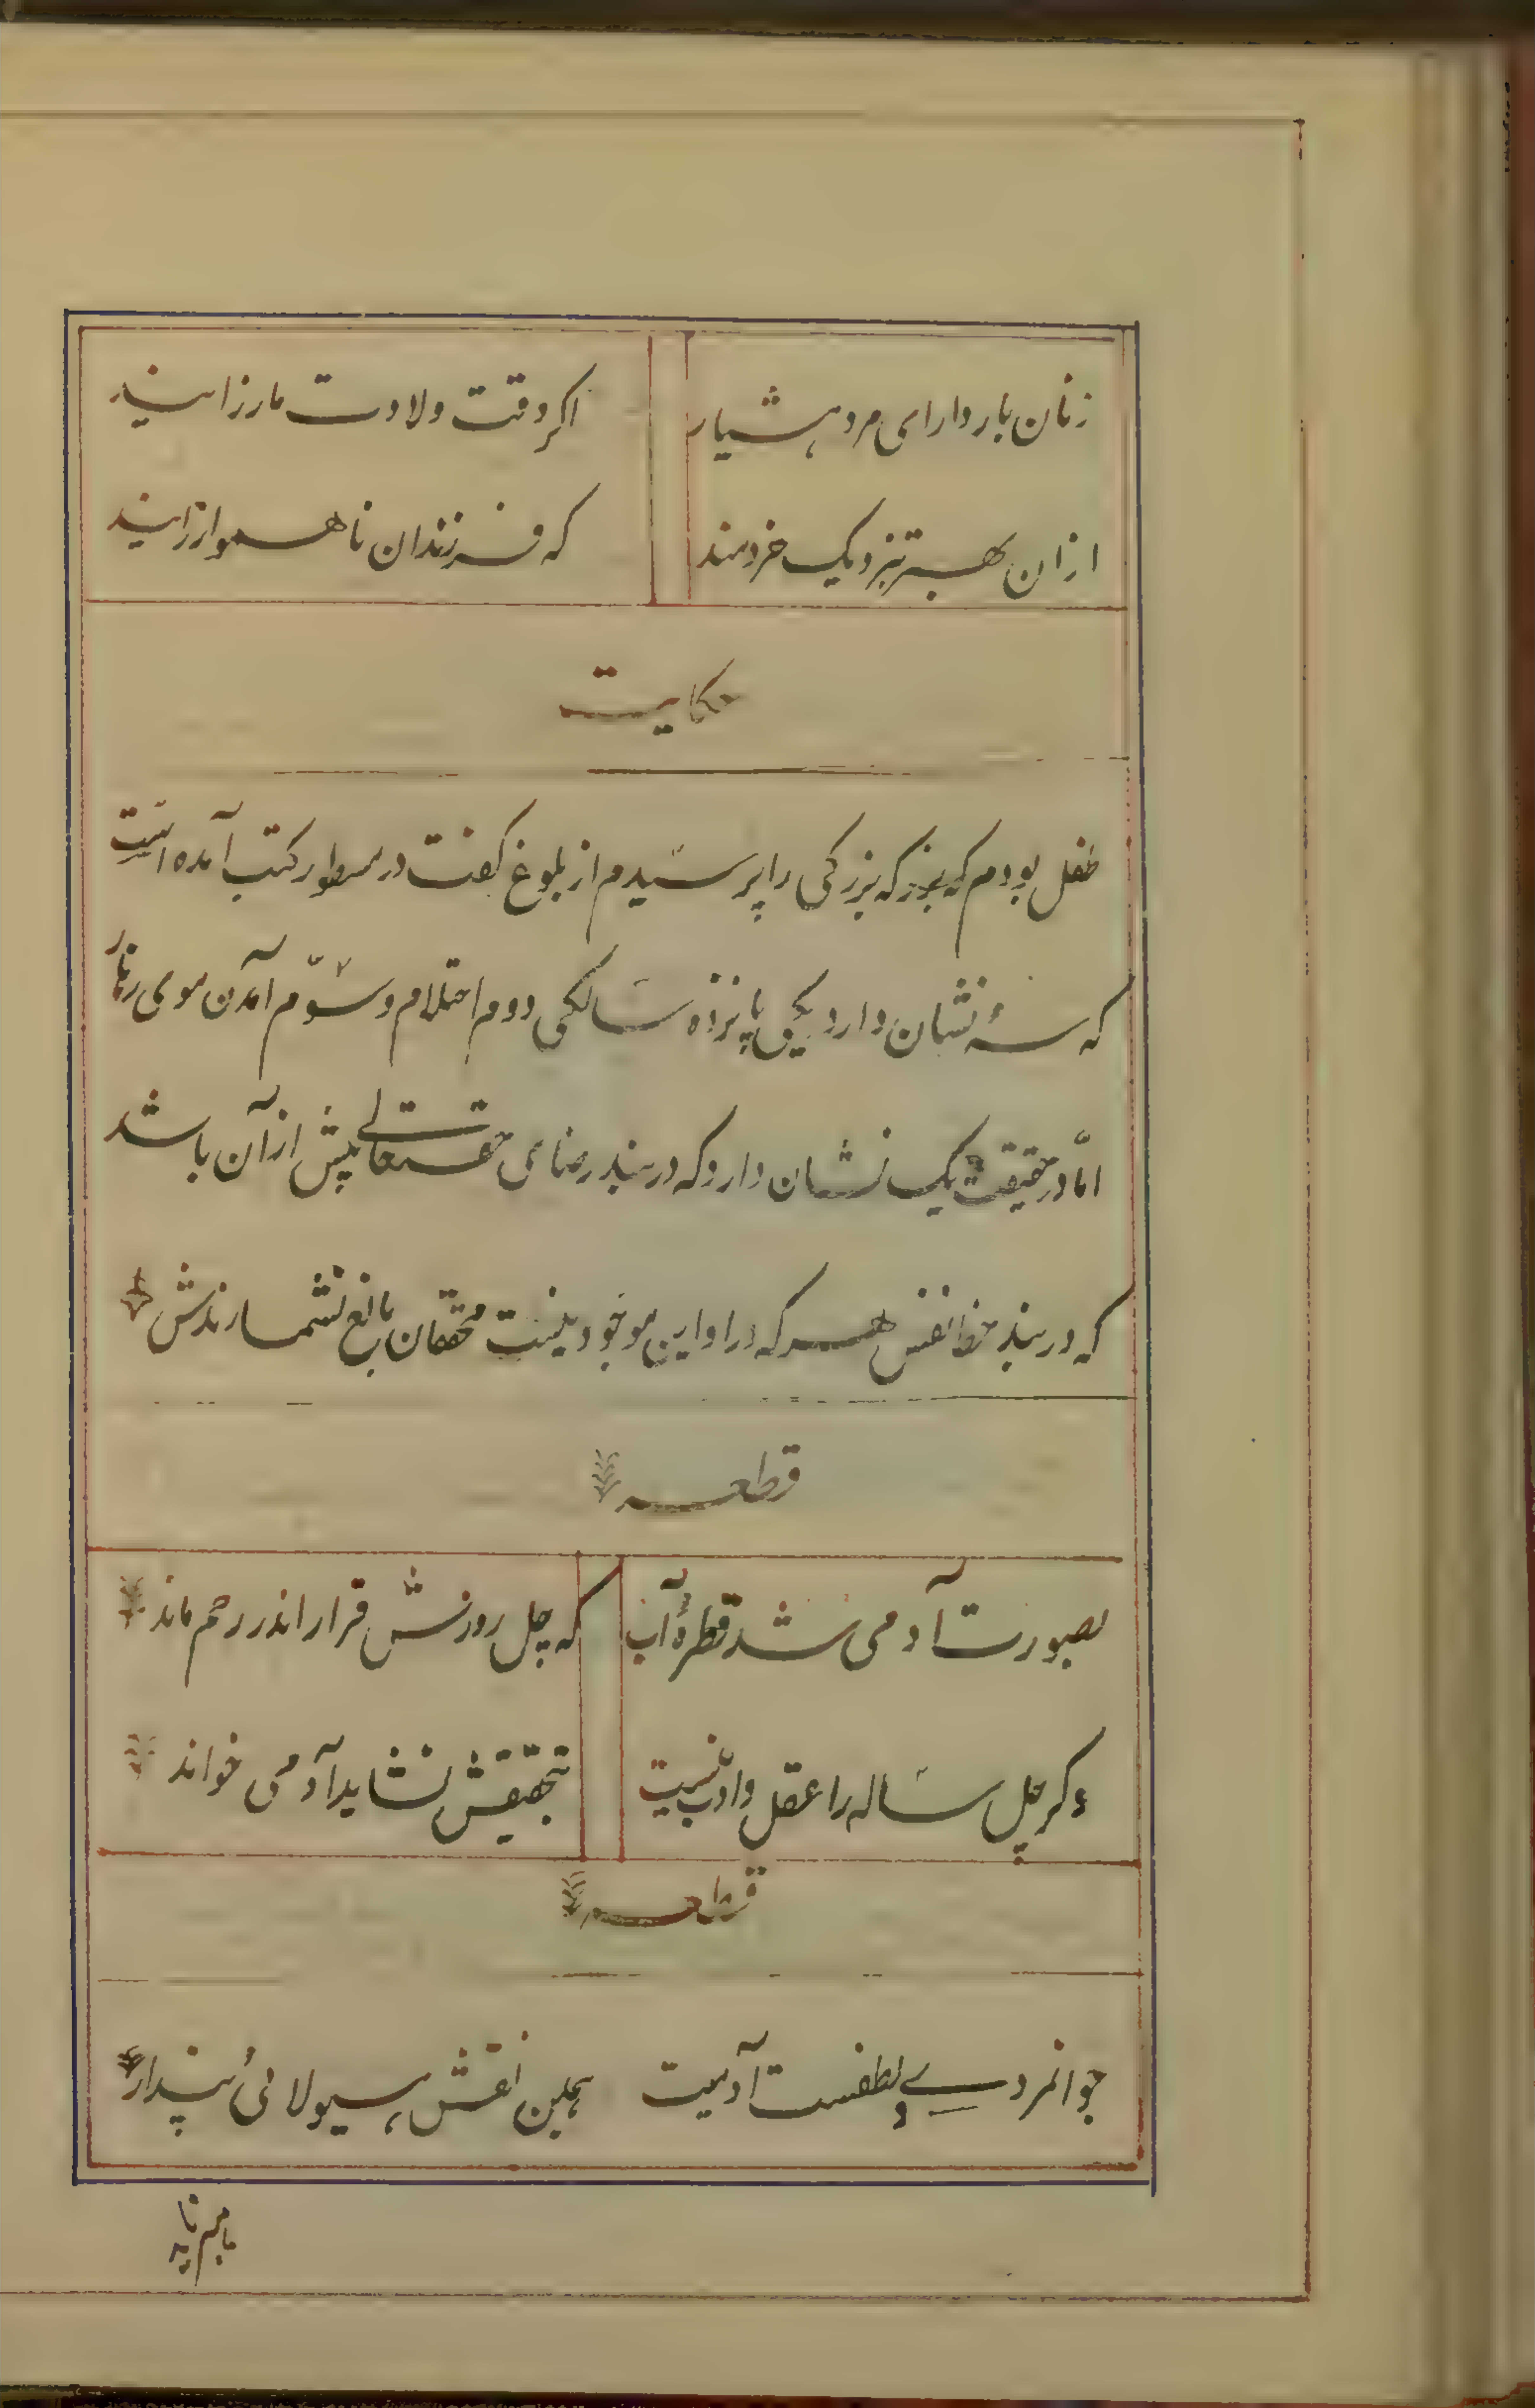 زنان باردار ای مرد هشیار اگر وقت ولادت مار زایند
ازان بهتر بنزدیک خردمند که فرزندان ناهموار زایند
حکایت
طفل بودم که بزرگی را پرسیدم از بلوغ گفت در سطور کتب آمده است
که سه نشان دارد یکی پانزده سالگی دوم احتلام و سوّم آمدن موی زهار
امّا در حقیقت یک نشان دارد که در بند رضای حقتعالی پیش ازآن باشد
که در بند حظ نفس هرکه درا و این موجود نیست محققان بالغ نشمارندش
قطعه
بصورت آدمی شد قطرهٔ آب که چل روزش قرار اندر رحم ماند
وگر چل ساله را عقل و ادب نیست بتحقیقش نشاید آدمی خواند
قطعه
جوانمردی و لطفست آدمیت همین نقش هیولائی پندار
هنر